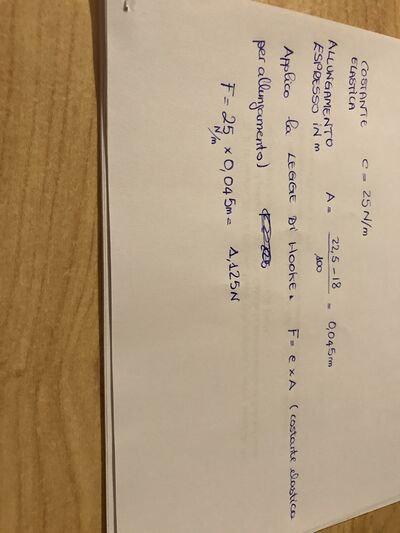 COSTANTE
ELASTICA
c = 25 N/m
ALLUNGAMENTO
ESPRESSO IN m
A = 22,5 - 18 / 100 = 0,045 m
Applico la LEGGE DI HOOKE. F = e x A (costante elastica
per allungamento)
F = 25 N/m x 0,045 m = 1,125N